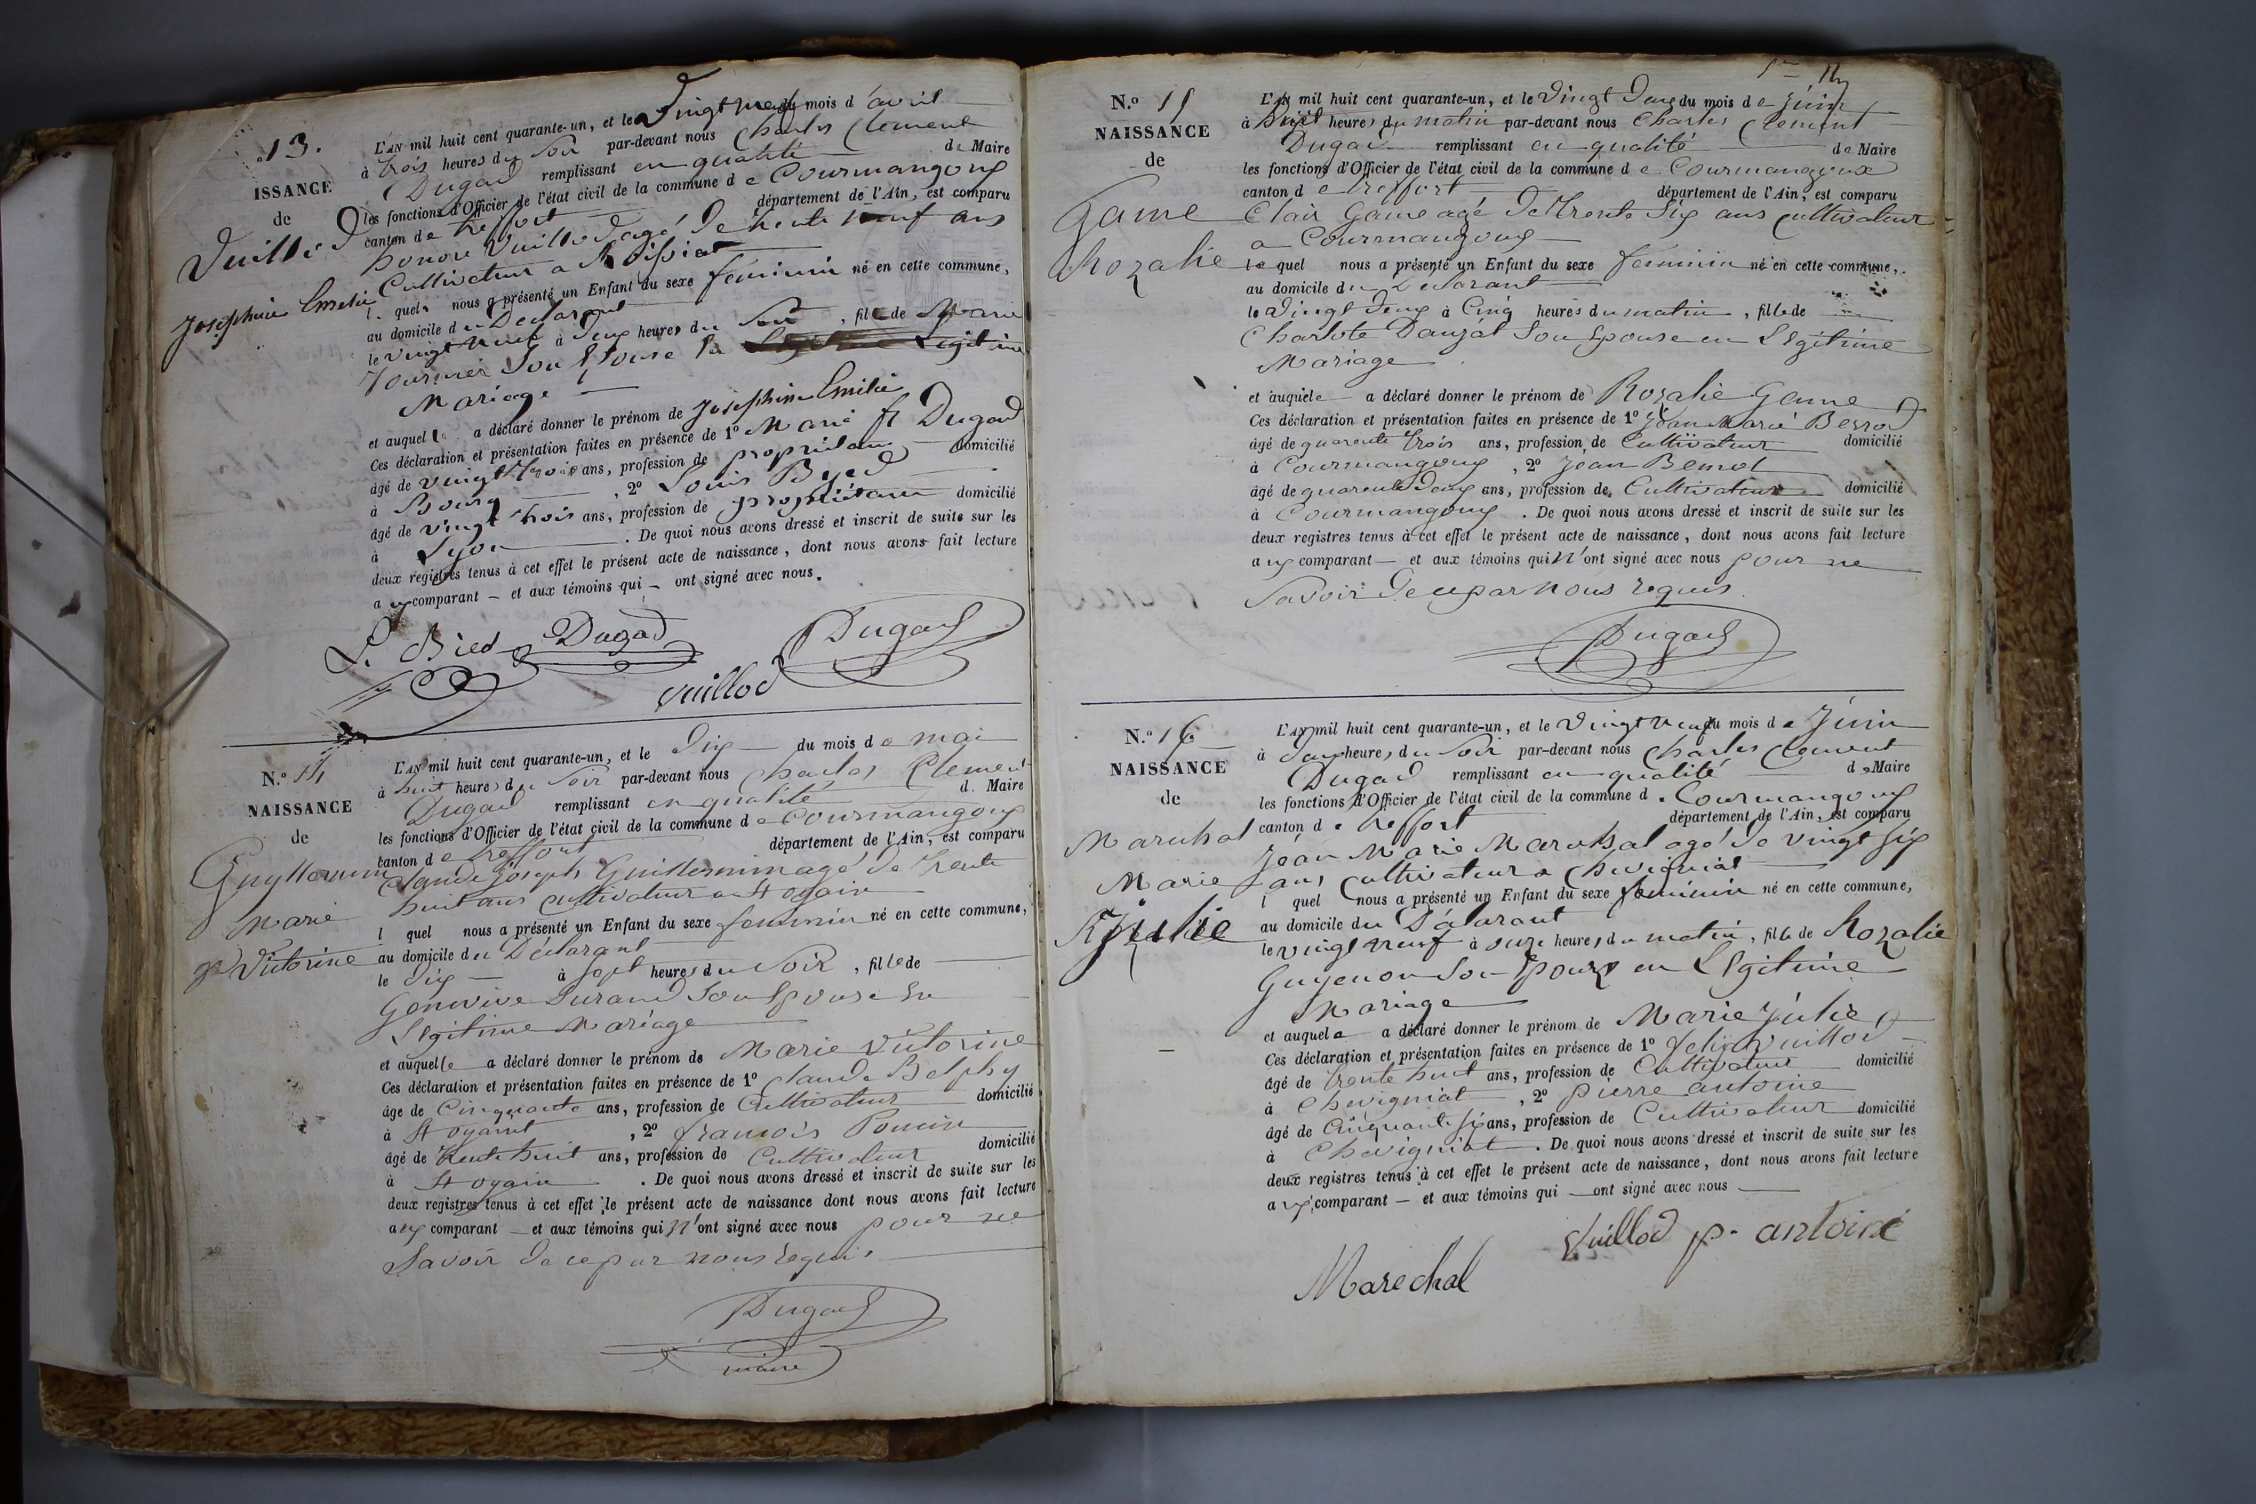 13.
ISSANCE
de
Vuillod
Josephine Emelie
L'AN mil huit cent quarante-un, et le Vingt neuf du mois d'avril
à trois heures du Soir par-devant nous Charles Clement
Dugad remplissant en qualité de Maire
les fonctions d'Officier de l'état civil de la commune de Courmangoux
canton de treffort département de l'Ain, est comparu
honore Vuillod agé de trente neuf ans
Cultivateur a Roissiat
l quel nous a présenté un Enfant du sexe féminin né en cette commune,
au domicile du Declarant
le vingt neuf à deux heures du Soir, fille de Marie
fournier Son Epouse en Legitime
Mariage
et auquel a déclaré donner le prénom de Josephine Emilie
Ces déclaration et présentation faites en présence de 1º Marie fr Dugad
âgé de vingt trois ans, profession de propriétaire domicilié
à Bourg, 2º Louis Bied
âgé de vingt trois ans, profession de propriétaire domicilié
à Lyon. De quoi nous avons dressé et inscrit de suite sur les
deux registres tenus à cet effet le présent acte de naissance, dont nous avons fait lecture
aux comparant et aux témoins qui ont signé avec nous.
L. Bied Dugad Dugad
Vuillod
N.º 14
NAISSANCE
de
Guyllermin
Marie
Victorine
L'AN mil huit cent quarante-un, et le Dix du mois de mai
à huit heures du Soir par-devant nous Charles Clement
Dugad remplissant en qualité d Maire
les fonctions d'Officier de l'état civil de la commune de Courmangoux
canton de treffort département de l'Ain, est comparu
Claude Joseph Guillermin agé de trente
huit ans cultivateur a St oyain
l quel nous a présenté un Enfant du sexe feminin né en cette commune,
au domicile du Déclarant
le dix à sept heures du Soir, fille de
Genevive Durand Son Epouse En
Legitime Mariage
et auquelle a déclaré donner le prénom de Marie Victorine
Ces déclaration et présentation faites en présence de 1º Claude Belphy
âgé de Cinquante ans, profession de Cultivateur domicilié
à St oyaint, 2º francois Poncin
âgé de trente huit ans, profession de Cultivateur domicilié
à St oyain. De quoi nous avons dressé et inscrit de suite sur les
deux registres tenus à cet effet le présent acte de naissance dont nous avons fait lecture
aux comparant et aux témoins qui n'ont signé avec nous pour ne
Savoir de ce par nous requis
Dugad
maire
N.º 15
NAISSANCE
de
Game
Rozalie
L'AN mil huit cent quarante-un, et le Vingt deux du mois de juin
à huit heures du matin par-devant nous Charles Clement
Dugad remplissant en qualité de Maire
les fonctions d'Officier de l'état civil de la commune de Courmangoux
canton de treffort département de l'Ain, est comparu
Clair Game agé de trente Six ans Cultivateur
a Courmangoux
le quel nous a présenté un Enfant du sexe feminin né en cette commune,
au domicile du Declarant
le Vingt deux à Cinq heures du matin, fille de
Charlote Dauzat Son Epouse en Légitime
Mariage
et auquele a déclaré donner le prénom de Rozalie Game
Ces déclaration et présentation faites en présence de 1º Jean Marie Berrod
âgé de quarente trois ans, profession de Cultivateur domicilié
à Courmangoux, 2º Jean Bernot
âgé de quarente deux ans, profession de Cultivateur domicilié
à Courmangoux. De quoi nous avons dressé et inscrit de suite sur les
deux registres tenus à cet effet le présent acte de naissance, dont nous avons fait lecture
aux comparant et aux témoins qui n'ont signé avec nous pour ne
Savoir de ce par nous requis.
Dugad
N.º 16
NAISSANCE
de
Marechal
Marie
Julie
L'AN mil huit cent quarante-un, et le Vingt neuf du mois de Juin
à heures du Soir par-devant nous Charles Clement
Dugad remplissant en qualité de Maire
les fonctions d'Officier de l'état civil de la commune de Courmangoux
canton de treffort département de l'Ain, est comparu
Jean Marie Marechal agé de vingt Six
ans Cultivateur a Chevigniat
l quel nous a présenté un Enfant du sexe feminin né en cette commune,
au domicile du Déclarant
le vingt neuf à onze heures du matin, fille de Rozalie
Guyenon Son Epouze en Légitime
Mariage
et auquele a déclaré donner le prénom de Marie Julie
Ces déclaration et présentation faites en présence de 1º felix Vuillod
âgé de trente huit ans, profession de Cultivateur domicilié
à Chevigniat, 2º pierre antoine
âgé de Cinquante Six ans, profession de Cultivateur domicilié
à Chevigniat. De quoi nous avons dressé et inscrit de suite sur les
deux registres tenus à cet effet le présent acte de naissance, dont nous avons fait lecture
aux comparant et aux témoins qui ont signé avec nous
Vuillod p. antoine
Marechal